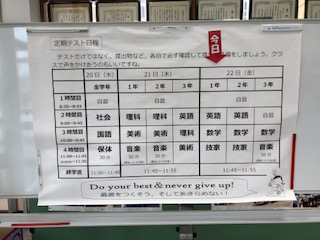 定期テスト日程
今日
テストだけではなく、提出物など、各自で必ず確認して
しましょう。クラ
スで声をかけあうのもいいですね。
20日（水） 21日（木） 22日（金）
全学年 1年 2年 3年 1年 2年 3年
1時間目 自習 自習 自習
2時間目 社会 理科 理科 英語 英語 英語 自習
3時間目 国語 美術 美術 理科 数学 数学 数学
4時間目 保体 音楽 音楽 美術 技家 技家 音楽
11:00～11:45
30分 30分 30分 30分
終学活 11:30～11:40 11:45～11:55 11:45～11:55
Do your best & never give up!
最善をつくそう、そしてあきらめない！